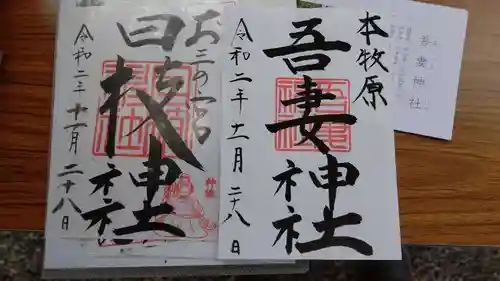 本牧原
吾妻神社
令和二年十一月二十八日
お三の宮
日枝神社
令和二年十一月二十八日
吾妻神社